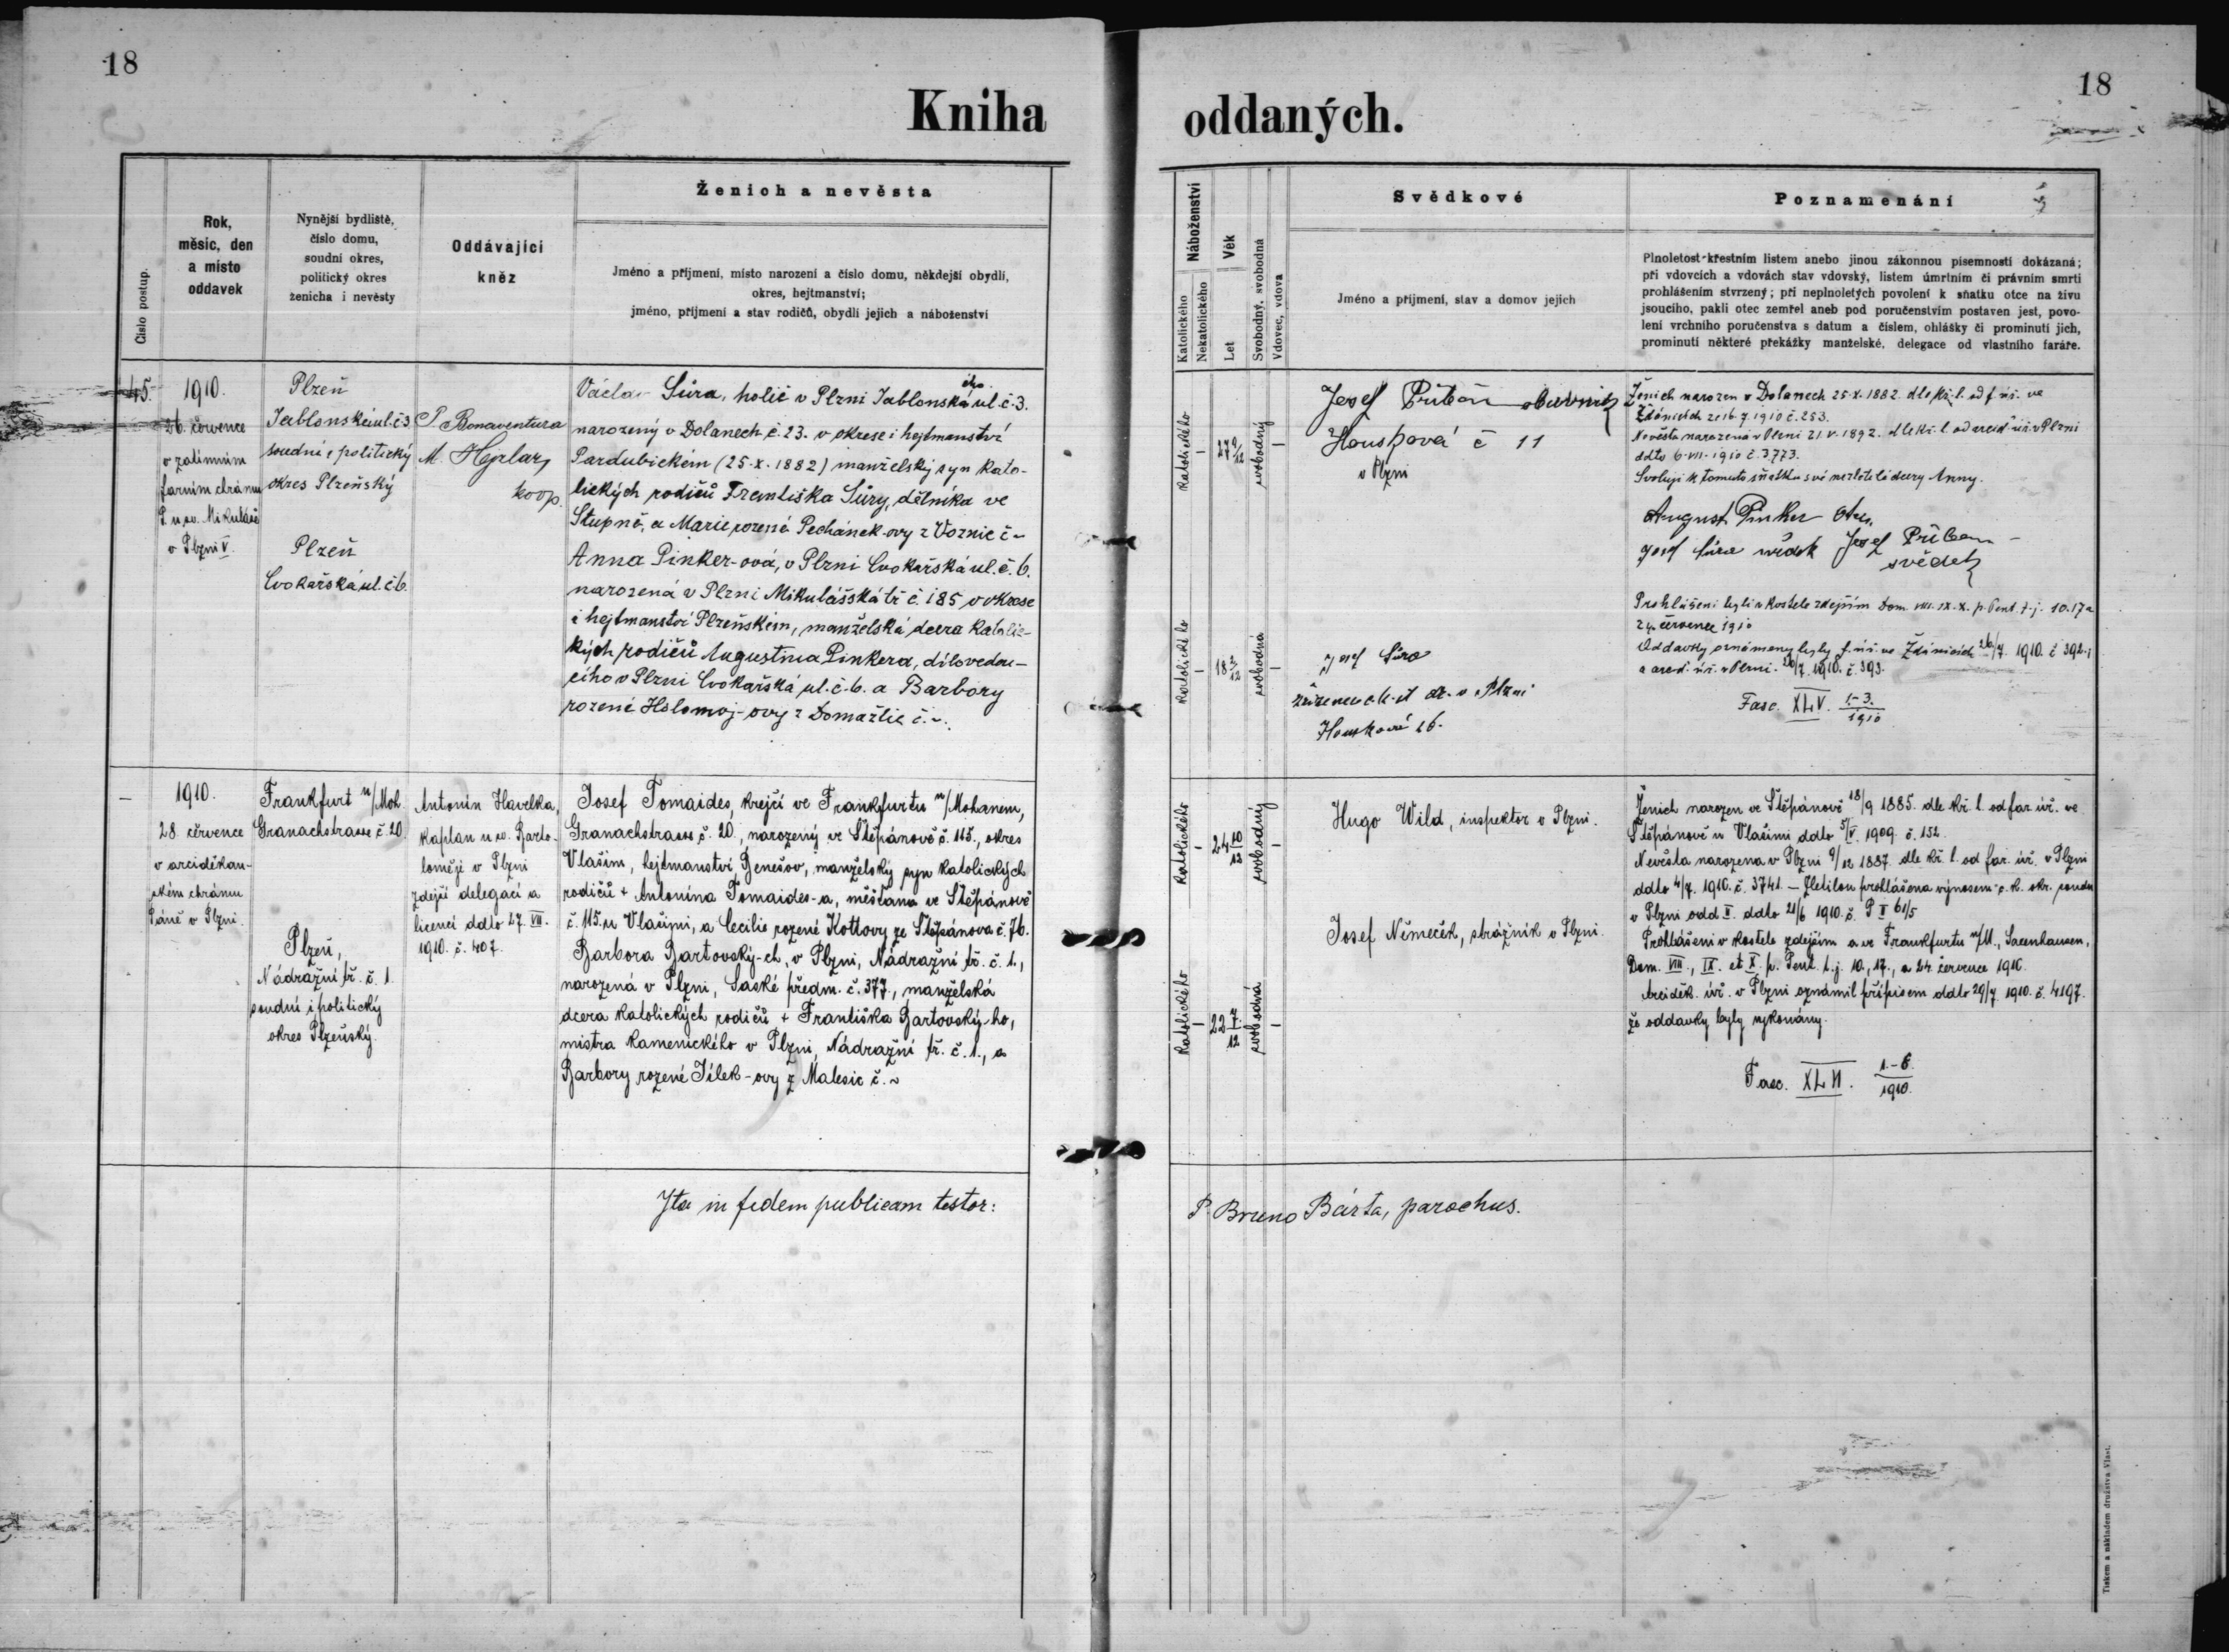 18
18
Kniha oddaných.
Číslo postup.
Rok,
měsíc, den
a místo
oddavek
Nynější bydliště,
číslo domu,
soudní okres,
politický okres
ženicha i nevěsty
Oddávající
kněz
Ženich a nevěsta
Jméno a příjmení, místo narození a číslo domu, někdejší obydlí,
okres, hejtmanství;
jméno, příjmení a stav rodičů, obydlí jejich a náboženství
Náboženství
Katolického
Nekatolického
Věk
Let
Svobodný, svobodná
Vdovec, vdova
Svědkové
Jméno a příjmení, stav a domov jejich
Poznamenání
Plnoletost křestním listem anebo jinou zákonnou písemností dokázaná;
při vdovcích a vdovách stav vdovský, listem úmrtním či právním smrti
prohlášením stvrzený; při neplnoletých povolení k sňatku otce na živu
jsoucího, pakli otec zemřel aneb pod poručenstvím postaven jest, povo-
lení vrchního poručenstva s datum a číslem, ohlášky či prominutí jich,
prominutí některé překážky manželské, delegace od vlastního faráře.
45.
1910.
26. července
v zatímním
farním chrámu
P. u sv. Mikuláše
v Plzni V.
Plzeň
Jablonského ul. č. 3
soudní i politický
okres Plzeňský
Plzeň
Cvokařská ul. č. 6.
P. Bonaventura
M.
koop.
Václav Sůra, holič v Plzni Jablonského ul. č. 3.
narozený v Dolanech č. 23. v okrese i hejtmanství
Pardubickém (25.X.1882) manželský syn kato-
lických rodičů Františka Sůry, dělníka ve
Stupně, a Marie rozené Pechánek-ovy z Voznic č ~
Anna Pinker-ová, v Plzni Cvokařská ul. č. 6.
narozená v Plzni Mikulášská tř č. 185 v okrese
i hejtmanství Plzeňském, manželská dcera katolic-
kých rodičů Augustina Pinkera, dílovedou-
cího v Plzni Cvokařská ul. č. 6. a Barbory
rozené Holomoj-ovy z Domažlic č. ~.
Katolického
–
27 9/12
svobodný
–
Katolického
–
18 2/12
svobodná
–
Josef Příbáň obuvník
Houškova č 11
v Plzni
Josef Sůra
zřízenec c. k. st. dr. v Plzni
Houškova 16.
Ženich narozen v Dolanech 25.X.1882. dle kř. l. od f. úř. ve
Ždánicích ze 16.7.1910 č. 253.
Nevěsta narozená v Plzni 21.V.1892. dle kř. l. od arcid. úř. v Plzni
ddto 6.VII.1910 č. 3773.
Svoluji k tomuto sňatku své nezletilé dcery Anny.
August Pinker otec.
Josef Sůra svědek Josef Příban
svědek
Prohlášeni byli v kostele zdejším Dom. VIII. IX. X. p. Pent. t. j. 10. 17 a
24. července 1910
Oddavky oznámeny byly f. úř. ve Ždánicích 26/7. 1910. č 392. i
a arcid. úř. v Plzni. 26/7. 1910. č. 393.
Fasc. XLV. 1.-3. 1910
–
1910.
28. července
v arciděkan-
ském chrámu
Páně v Plzni.
Frankfurt n/Moh.
Granachstrasse č. 20.
Plzeň,
Nádražní tř. č. 1.
soudní i politický
okres Plzeňský.
Antonín Havelka,
kaplan u sv. Barto-
loměje v Plzni
zdejší delegací a
licencí ddto 27. VII.
1910. č. 407.
Josef Tomaides, krejčí ve Frankfurtu n/Mohanem,
Granachstrasse č. 20., narozený ve Štěpánově č. 115., okres
Vlašim, hejtmanství Benešov, manželský syn katolických
rodičů + Antonína Tomaides-a, měšťana ve Štěpánově
č. 115. u Vlašimi, a Cecilie rozené Kottovy ze Štěpánova č. 76.
Barbora Bartovský-ch, v Plzni, Nádražní tř. č. 1.,
narozená v Plzni, Saské předm. č. 377., manželská
dcera katolických rodičů + Františka Bartovský-ho,
mistra kamenického v Plzni, Nádražní tř. č. 1., a
Barbory rozené Jílek-ovy z Malesic č. ~
Katolického
–
24 10/12
svobodný
–
Katolického
–
22 7/12
svobodná
–
Hugo Wild, inspektor v Plzni.
Josef Němeček, strážník v Plzni.
Ženich narozen ve Štěpánově 18/9 1885. dle kř. l. od far. úř. ve
Štěpánově u Vlašimi ddto 5/V. 1909. č. 152.
Nevěsta narozena v Plzni 9/12 1887. dle kř. l. od far. úř. v Plzni
ddto 4/7. 1910. č. 3741. – Zletilou prohlášena výnosem c. k. okr. soudu
v Plzni odd X. ddto 21/6 1910. č. P X 61/5
Prohlášeni v kostele zdejším a ve Frankfurtu n/M., Sacenhausen,
Dom. VIII., IX. et X. p. Pent. t. j. 10., 17., a 24. července 1910.
Arciděk. úř. v Plzni oznámil přípisem ddto 29/7. 1910. č. 4197.
že oddavky byly vykonány.
Fasc. XLVI. 1.-6. 1910.
Ita in fidem publicam testor: P. Bruno Bárta, parochus.
Tiskem a nákladem družstva Vlast.